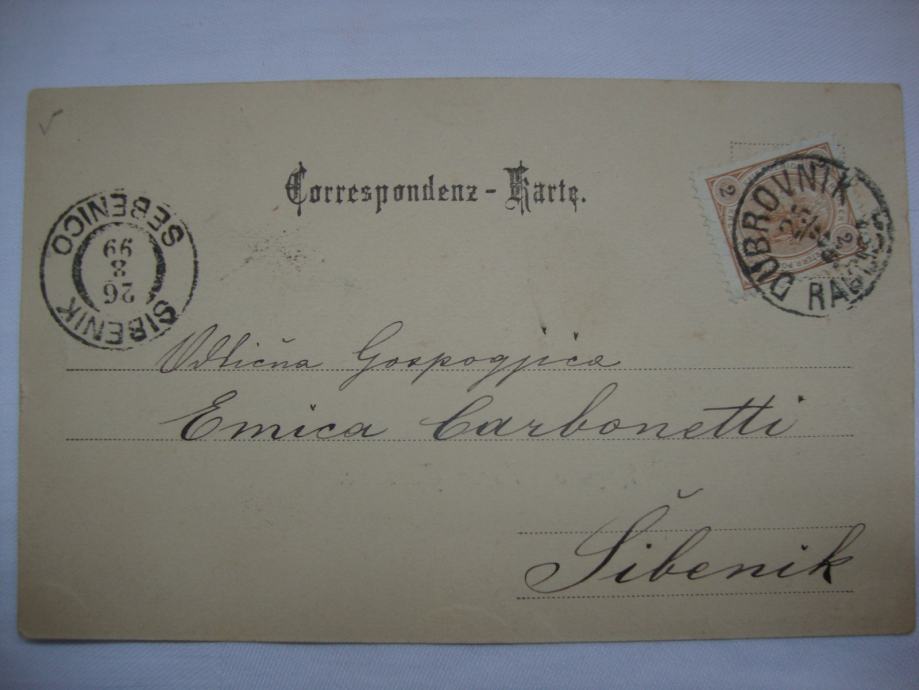 Correspondenz-Karte.
2
2
DUBROVNIK
SEBENICO
26
8
99
ŠIBENIK
Odlična Gospogjica
Emica Carbonetti
Šibenik